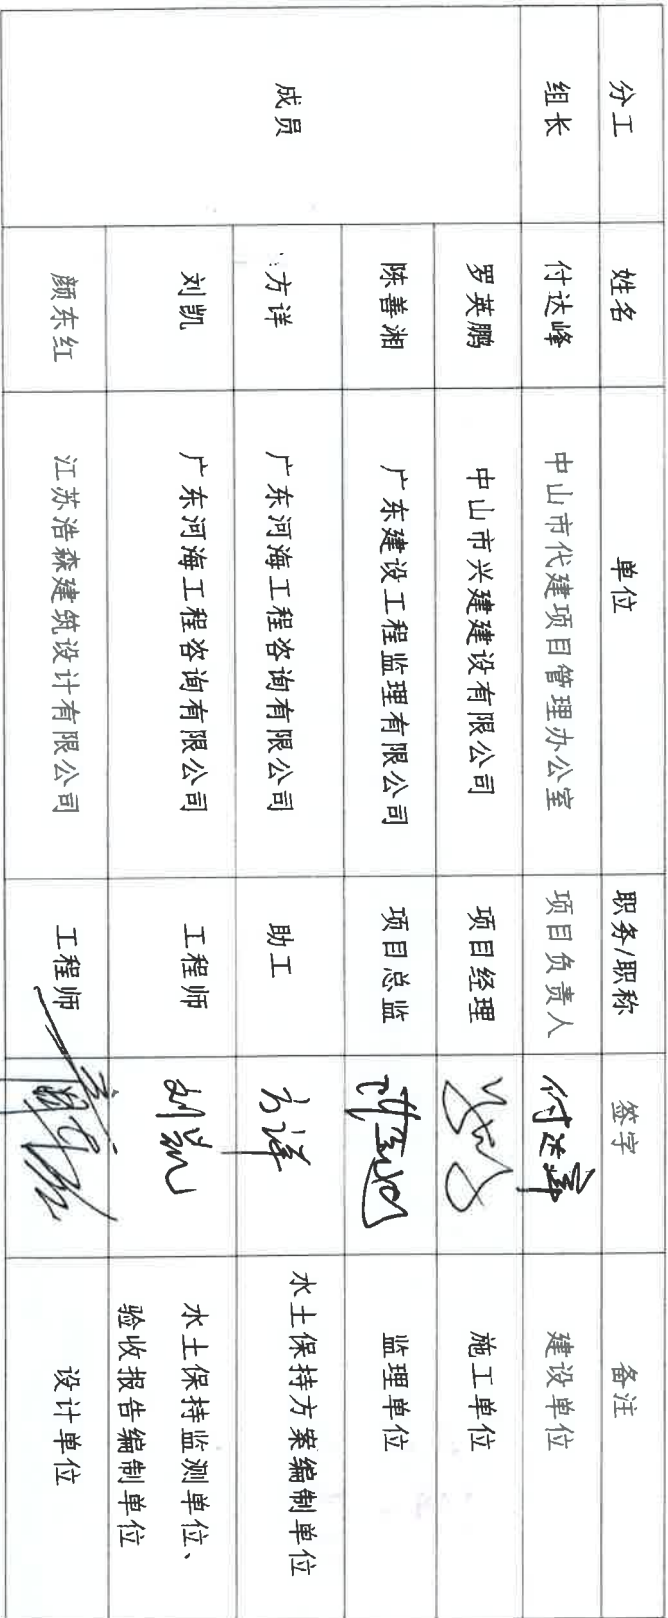 分工 姓名 单位 职务/职称 签字 备注
组长 付达峰 中山市代建项目管理办公室 项目负责人 付达峰 建设单位
成员 罗英鹏 中山市兴建建设有限公司 项目经理 施工单位
陈善湘 广东建设工程监理有限公司 项目总监 监理单位
方详 广东河海工程咨询有限公司 助工 方详 水土保持方案编制单位
刘凯 广东河海工程咨询有限公司 工程师 刘凯 水土保持监测单位、
验收报告编制单位
颜东红 江苏浩森建筑设计有限公司 工程师 设计单位